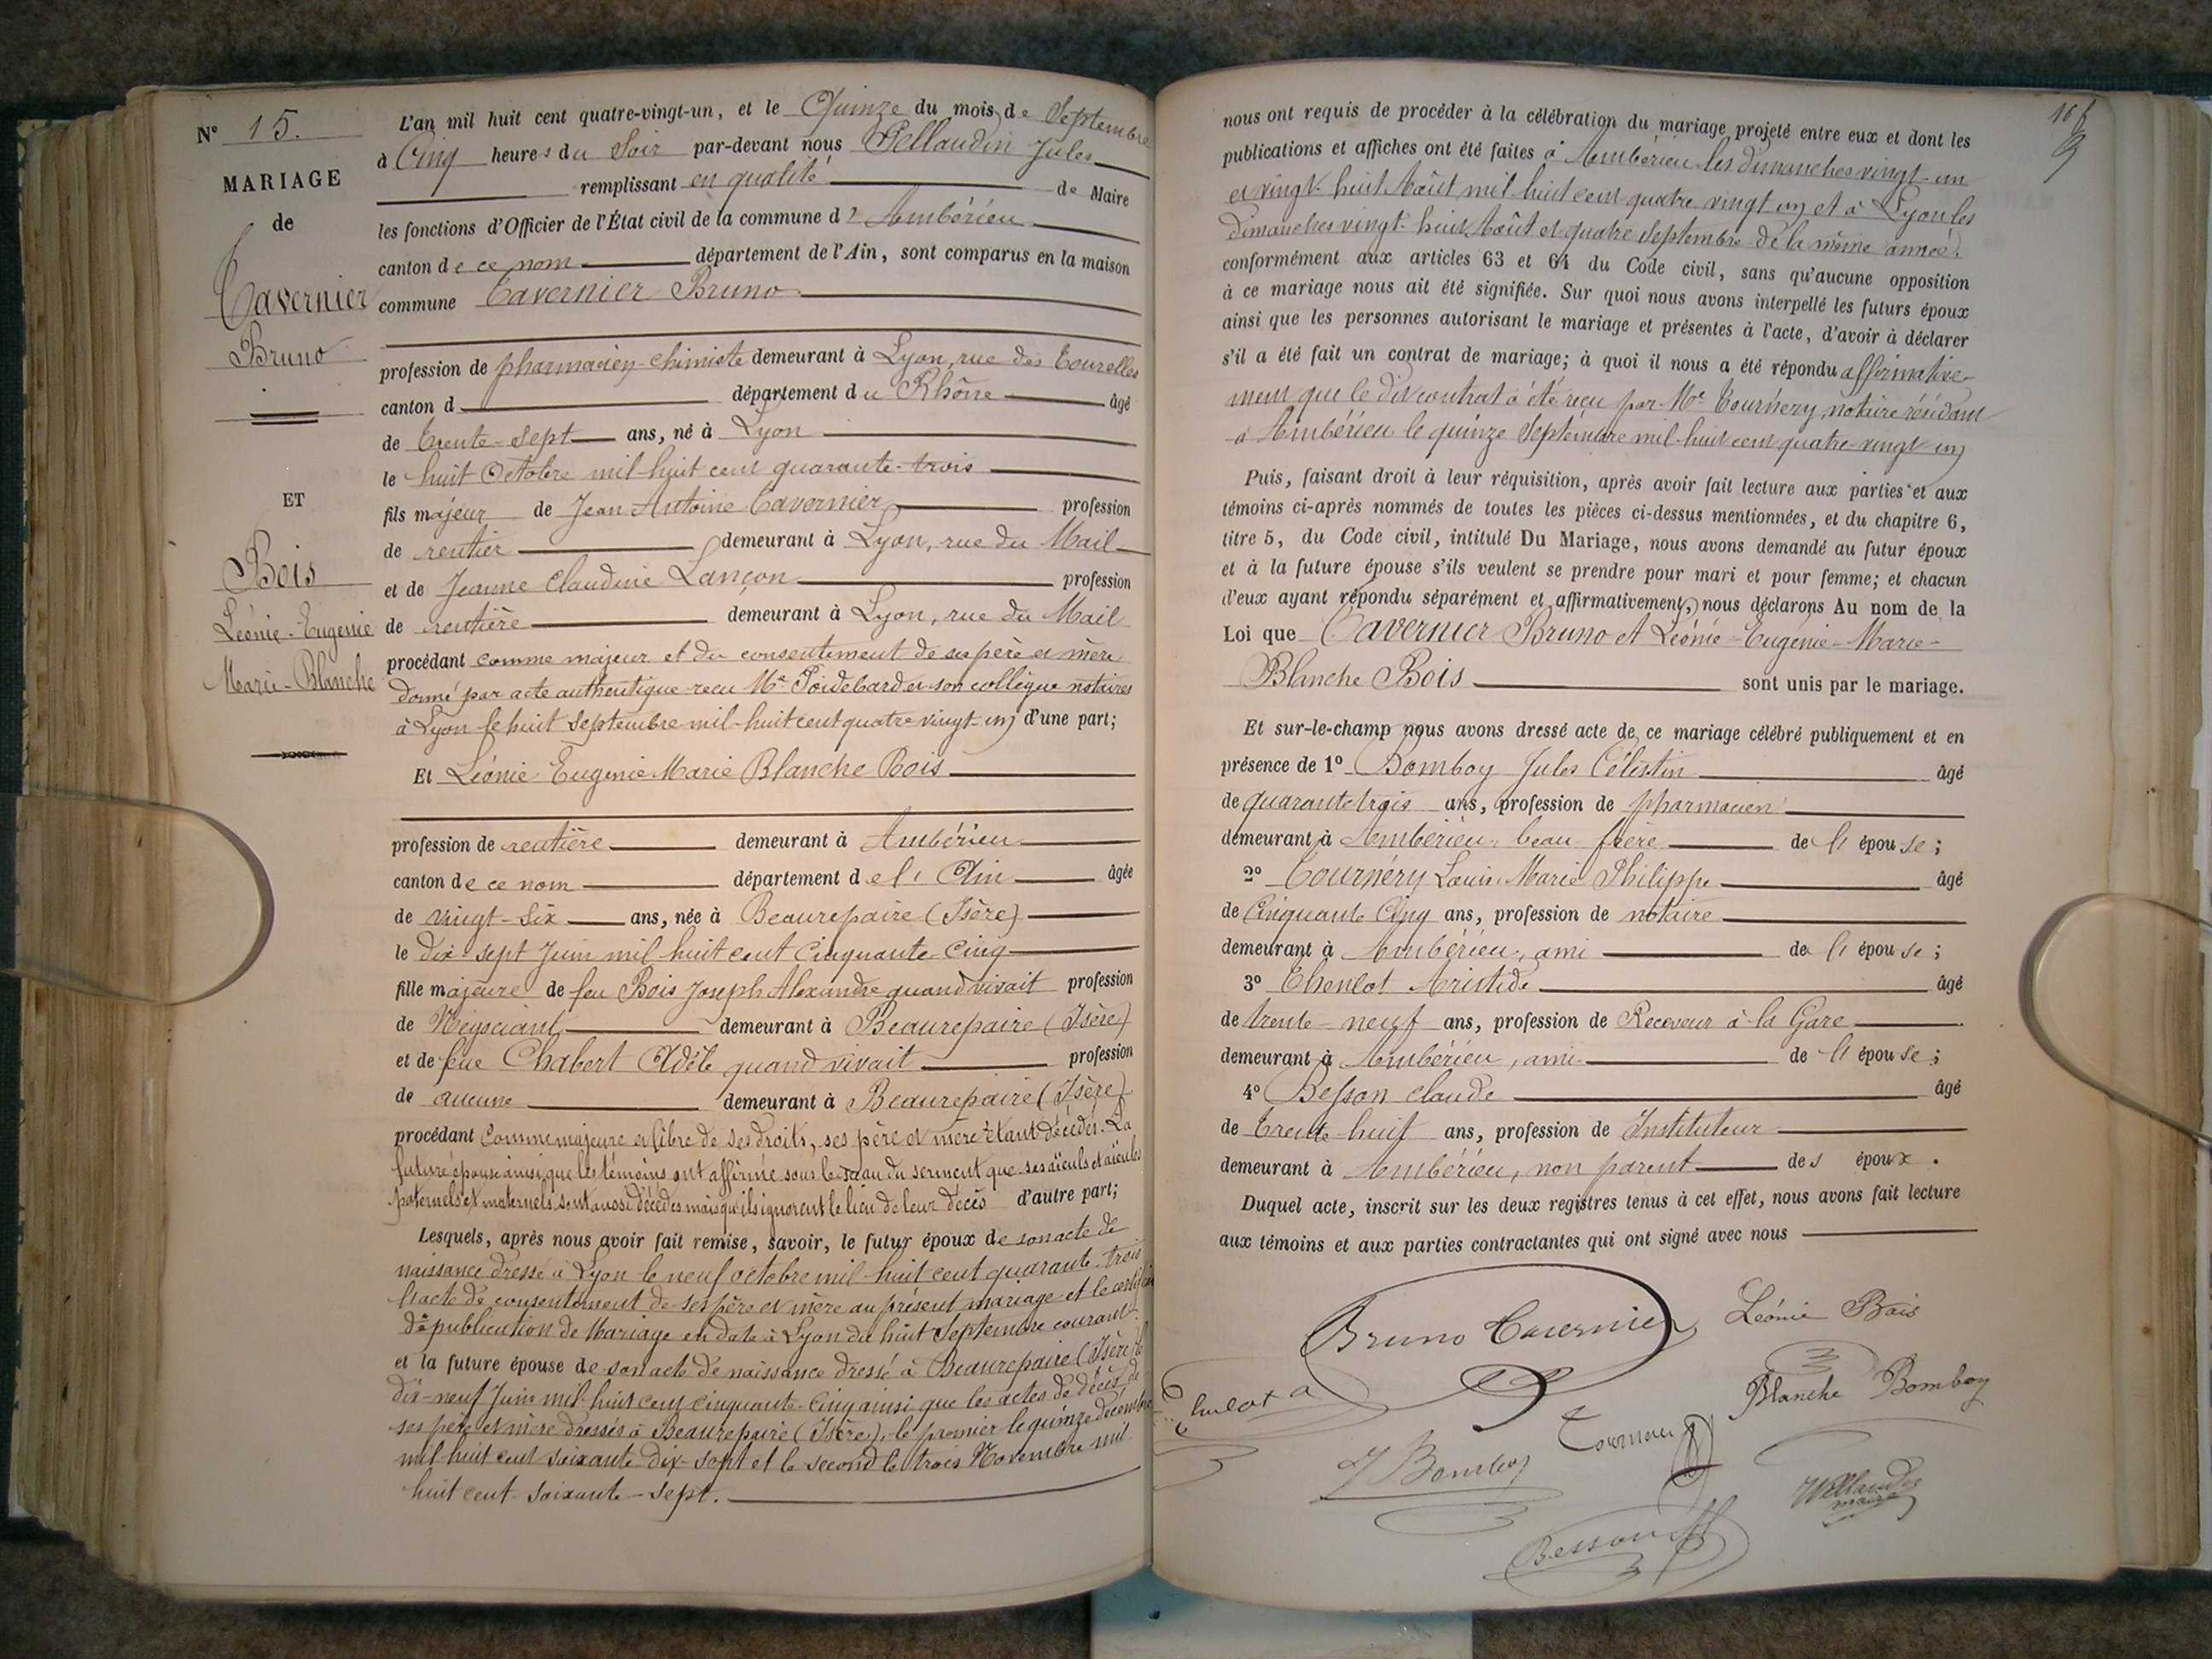 N° 15.
MARIAGE
de
Tavernier
Bruno
ET
Bois
Léonie-Eugénie
Marie-Blanche
L'an mil huit cent quatre-vingt-un, et le Quinze du mois de Septembre
à Cinq heures du Soir par-devant nous Pellaudin Jules
remplissant en qualité de Maire
les fonctions d'Officier de l'État civil de la commune d' Ambérieu
canton de ce nom département de l'Ain, sont comparus en la maison
commune Tavernier Bruno
profession de pharmacien-chimiste demeurant à Lyon, rue des Tourelles
canton d département du Rhône âgé
de trente-sept ans, né à Lyon
le huit Octobre mil-huit cent quarante-trois
fils majeur de Jean Antoine Tavernier profession
de rentier demeurant à Lyon, rue du Mail
et de Jeanne Claudine Lançon profession
de rentière demeurant à Lyon, rue du Mail
procédant comme majeur et du consentement de ses père et mère
donné par acte authentique reçu Me Poidebard et son collègue notaires
à Lyon le huit Septembre mil-huit cent quatre vingt-un d'une part;
Et Léonie Eugénie Marie Blanche Bois
profession de rentière demeurant à Ambérieu
canton de ce nom département de l'Ain âgée
de vingt-six ans, née à Beaurepaire (Isère)
le dix-sept Juin mil huit cent Cinquante-cinq
fille majeure de feu Bois Joseph Alexandre quand vivait profession
de Négociant demeurant à Beaurepaire (Isère)
et de feue Chabert Adèle quand vivait profession
de aucune demeurant à Beaurepaire (Isère)
procédant comme majeure et libre de ses droits, ses père et mère étant décédés. La
future épouse ainsi que les témoins ont affirmé sous le sceau du serment que ses aïeuls et aïeules
paternels et maternels sont aussi décédés mais qu'ils ignorent le lieu de leur décès d'autre part;
Lesquels, après nous avoir fait remise, savoir, le futur époux de son acte de
naissance dressé à Lyon le neuf octobre mil huit cent quarante-trois
l'acte de consentement de ses père et mère au présent mariage et le certificat
de publication de Mariage en date à Lyon du huit Septembre courant.
et la future épouse de son acte de naissance dressé à Beaurepaire (Isère) le
dix-neuf Juin mil-huit cent cinquante-cinq ainsi que les actes de décès de
ses père et mère dressés à Beaurepaire (Isère), le premier le quinze décembre
mil-huit cent soixante dix-sept et le second le trois Novembre mil
huit cent soixante-sept.
nous ont requis de procéder à la célébration du mariage projeté entre eux et dont les
publications et affiches ont été faites à Ambérieu les dimanches vingt-un
et vingt-huit Août mil huit cent quatre vingt un et à Lyon les
dimanches vingt-huit Août et quatre Septembre de la même année.
conformément aux articles 63 et 64 du Code civil, sans qu'aucune opposition
à ce mariage nous ait été signifiée. Sur quoi nous avons interpellé les futurs époux
ainsi que les personnes autorisant le mariage et présentes à l'acte, d'avoir à déclarer
s'il a été fait un contrat de mariage; à quoi il nous a été répondu affirmative-
ment que le dit contrat a été reçu par Me Tournery, notaire résidant
à Ambérieu le quinze Septembre mil-huit cent quatre-vingt-un
Puis, faisant droit à leur réquisition, après avoir fait lecture aux parties et aux
témoins ci-après nommés de toutes les pièces ci-dessus mentionnées, et du chapitre 6,
titre 5, du Code civil, intitulé Du Mariage, nous avons demandé au futur époux
et à la future épouse s'ils veulent se prendre pour mari et pour femme; et chacun
d'eux ayant répondu séparément et affirmativement, nous déclarons Au nom de la
Loi que Tavernier Bruno et Léonie-Eugénie-Marie-
Blanche Bois sont unis par le mariage.
Et sur-le-champ nous avons dressé acte de ce mariage célébré publiquement et en
présence de 1° Bomboy Jules Célestin âgé
de quarante trois ans, profession de pharmacien
demeurant à Ambérieu, beau-frère de l'épouse;
2° Tournéry Louis Marie Philippe âgé
de Cinquante Cinq ans, profession de notaire
demeurant à Ambérieu, ami de l'épouse;
3° Thenlot Aristide âgé
de trente-neuf ans, profession de Receveur à la Gare
demeurant à Ambérieu, ami de l'épouse;
4° Besson Claude âgé
de Trente-huit ans, profession de Instituteur
demeurant à Ambérieu, non parent des époux.
Duquel acte, inscrit sur les deux registres tenus à cet effet, nous avons fait lecture
aux témoins et aux parties contractantes qui ont signé avec nous
Bruno Tavernier
Léonie Bois
Blanche Bomboy
J Bomboy
maire
Besson